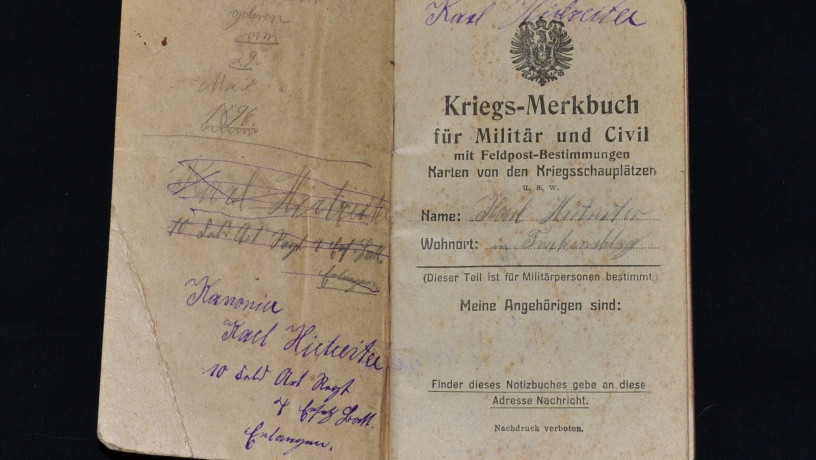 29
Mai
1896.
Karl
10 Feld Art Regt
Erlangen
Kanonier
Karl
10 Feld Art Regt
Ersatz Batt.
Erlangen.
Karl
Kriegs-Merkbuch
für Militär und Civil
mit Feldpost-Bestimmungen
Karten von den Kriegsschauplätzen
u. s. w.
Name: Karl
Wohnort: in
(Dieser Teil ist für Militärpersonen bestimmt.)
Meine Angehörigen sind:
Finder dieses Notizbuches gebe an diese
Adresse Nachricht.
Nachdruck verboten.